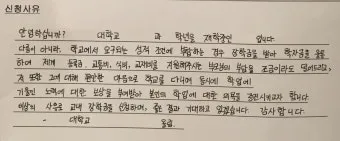 신청사유
안녕하십니까? 대학교 과 학년을 재학중인 입니다
다름이 아니라, 학교에서 요구되는 성적 조건에 부합하는 경우 장학금을 받아 학자금을 응용
하여 제게 등록금, 교통비, 식비, 교재비를 지원해주시는 부모님의 부담을 조금이라도 덜어드리고,
저 또한 그에 대해 편안한 마음으로 학교를 다니며 동시에 학업에
기울인 노력에 대한 보상을 부여받아 본인의 학업에 대한 의욕을 증진시키고자 합니다.
이상의 사유로 교내 장학금을 신청하며, 좋은 결과 기대하고 있겠습니다. 감사합니다.
- 대학교 올림.